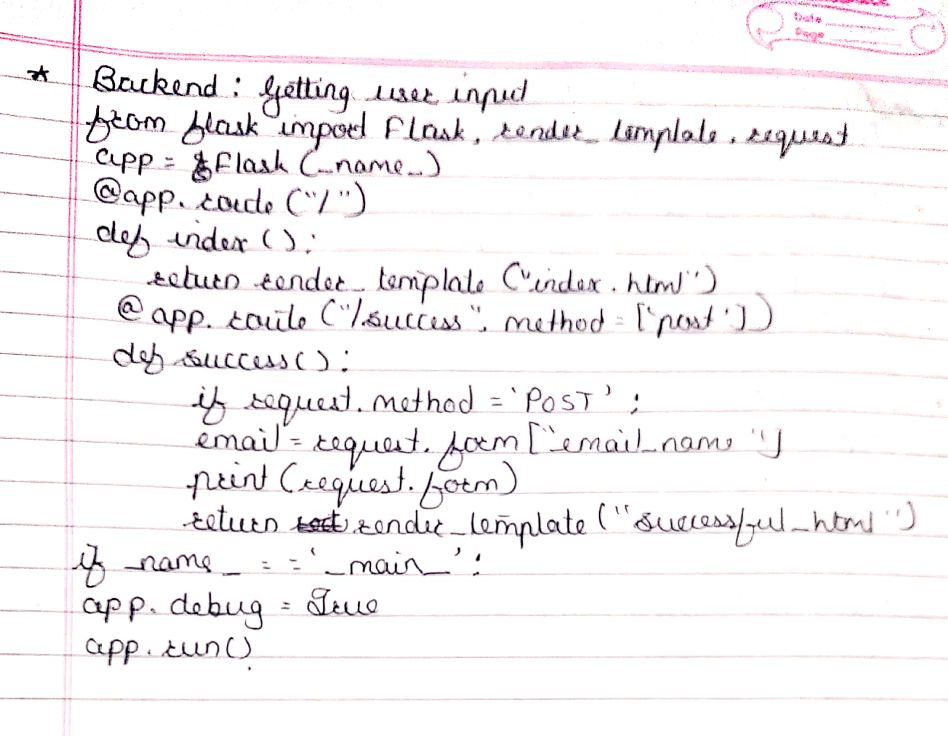 Date
Page
* Backend : Getting user input
from flask import Flask, render_template, request
app = Flask (_name_)
@app.route ("/")
def index ():
return render_template ("index.html")
@app.route ("/success", method = ['post'])
def success():
if request.method = 'POST' :
email = request.form ["email_name"]
print (request.form)
return render_template ("successful_html")
if _name_ == '_main_' :
app.debug = True
app.run()